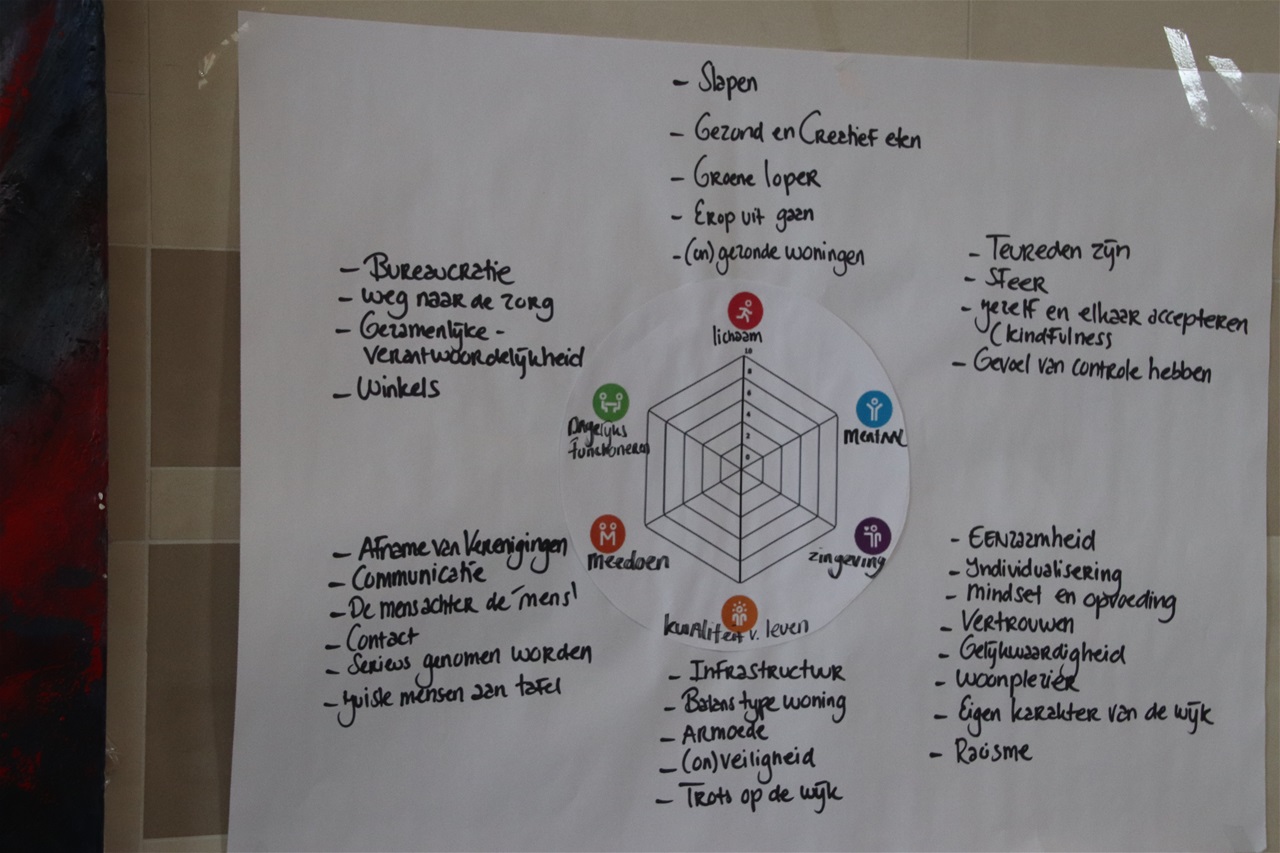 - Slapen
- Gezond en Creatief eten
- Groene loper
- Erop uit gaan
- (on)gezonde woningen
- Bureaucratie
- weg naar de zorg
- Gezamenlijke -
verantwoordelijkheid
- Winkels
- Tevreden zijn
- Sfeer
- jezelf en elkaar accepteren
(kindfulness
- Gevoel van controle hebben
lichaam
10
8
6
4
2
0
Dagelijks
functioneren
Mentaal
meedoen
zingeving
kwaliteit v. leven
- Afname van Verenigingen
- Communicatie
- De mens achter de "mens"
- Contact
- Serieus genomen worden
- juiste mensen aan tafel
- Infrastructuur
- Balans type woning
- Armoede
- (on)veiligheid
- Trots op de wijk
- EENzaamheid
- Individualisering
- mindset en opvoeding
- Vertrouwen
- Gelijkwaardigheid
- woonplezier
- Eigen karakter van de wijk
- Racisme